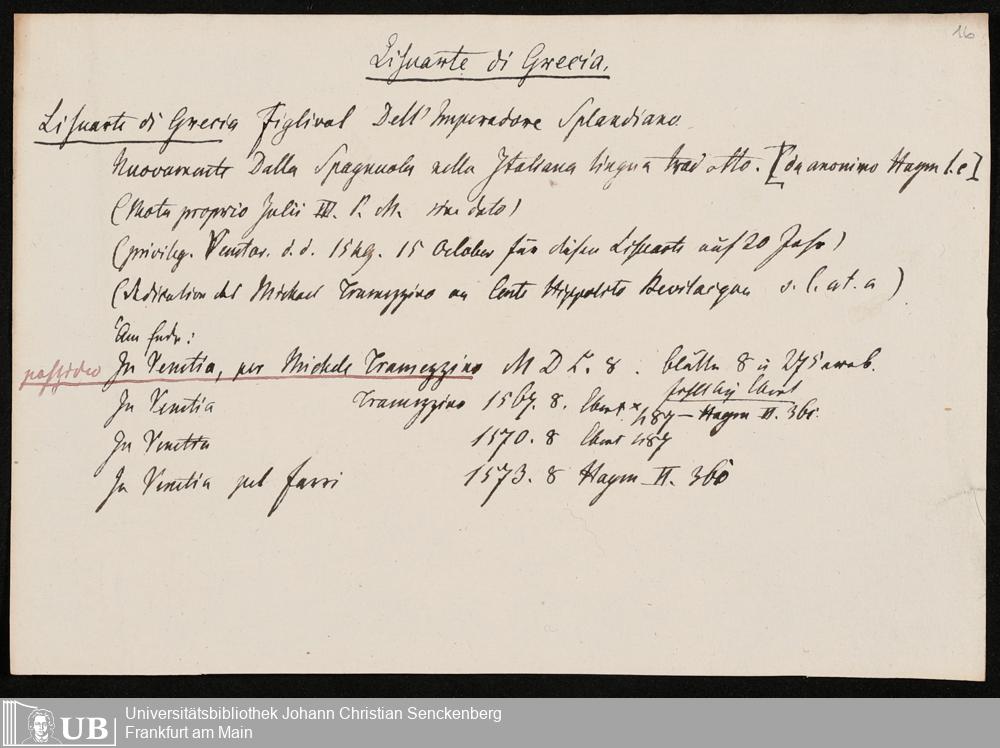 16
Lisuarte di Grecia.
Lisuarte di Grecia Figlivol Dell' Imperadore Splandiano
Nuovamente Dalla Spagnuola nella Italiana lingua tradotto. [da anonimo Haym l.c]
(Motu proprio Julii III. P. M. sine dato)
(privileg. Venetor. d. d. 1549. 15 October für diesen Lisuarte auf 20 Jahr)
(Dedication des Michael Tramezzino an Conte Hippolito Bevilacqua s. l. et. a)
Am Ende:
possideo In Venetia, per Michele Tramezzino M D L. 8. blätter 8 u 275 arab.
fehlt bey Ebert
In Venetia Tramezzino 1567. 8. Ebert 487 - Haym II. 360.
In Venetia 1570. 8 Ebert 487
In Venetia pel Farri 1573. 8 Haym II. 360
UB Universitätsbibliothek Johann Christian Senckenberg
Frankfurt am Main